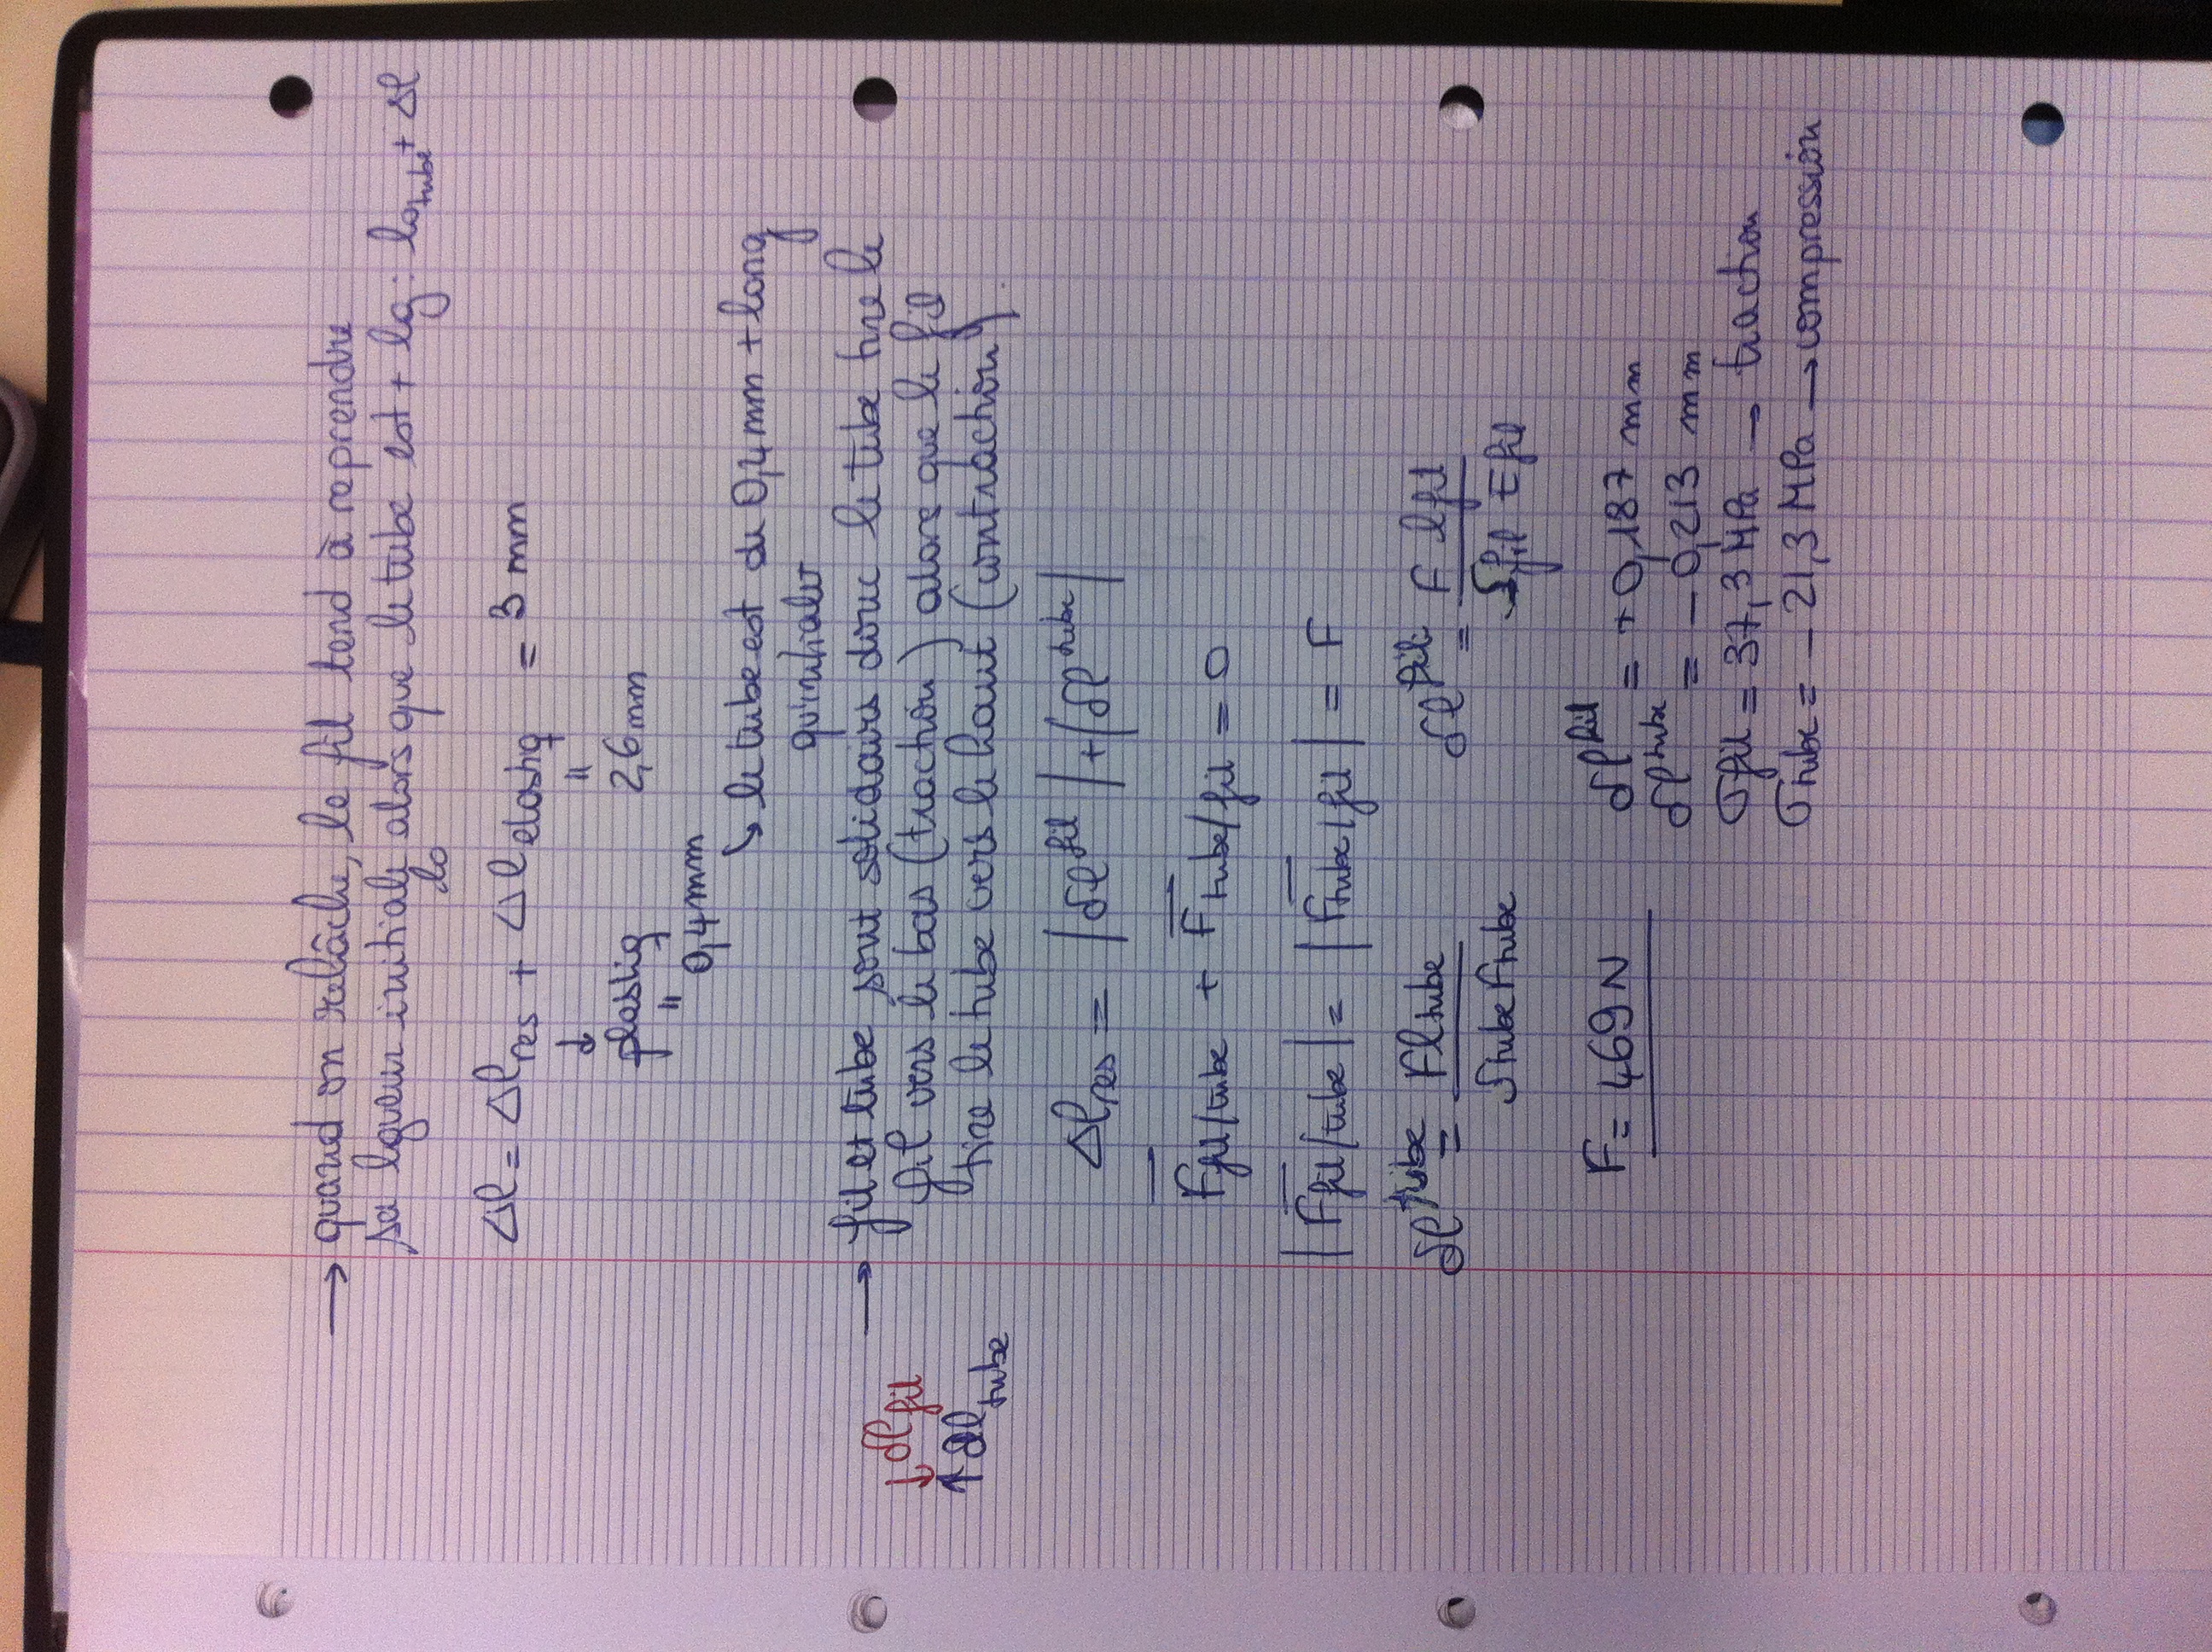 → quand on relâche, le fil tend à reprendre
sa lgueur initiale alors que le tube est + lg : l₀tube + Δl
l₀
Δl = Δl res + Δl elastiq = 3 mm
↓ "
plastiq 2,6 mm
"
0,4 mm
↳ le tube est de 0,4 mm + long
qu'initialt
→ fil et tube sont solidairs donc le tube tire le
↓ δl fil
fil vers le bas (traction) alors que le fil
↑ δl tube
tire le tube vers le haut (contraction).
Δl res = |δl fil| + |δl tube|
F fil/tube + F tube/fil = 0
|F fil/tube| = |F tube/fil| = F
δl tube = F l tube / S tube F tube δl fil = F l fil / S fil E fil
F = 469 N δl fil = + 0,187 mm
δl tube = - 0,213 mm
σ fil = 37,3 MPa → traction
σ tube = - 21,3 MPa → compression